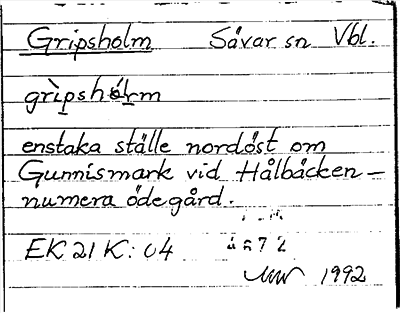 Gripsholm Sävar sn Vbl.
grìpshólm
enstaka ställe nordöst om
Gunnismark vid Hålbäcken –
numera ödegård.
EK 21 K: 04 4672
1992